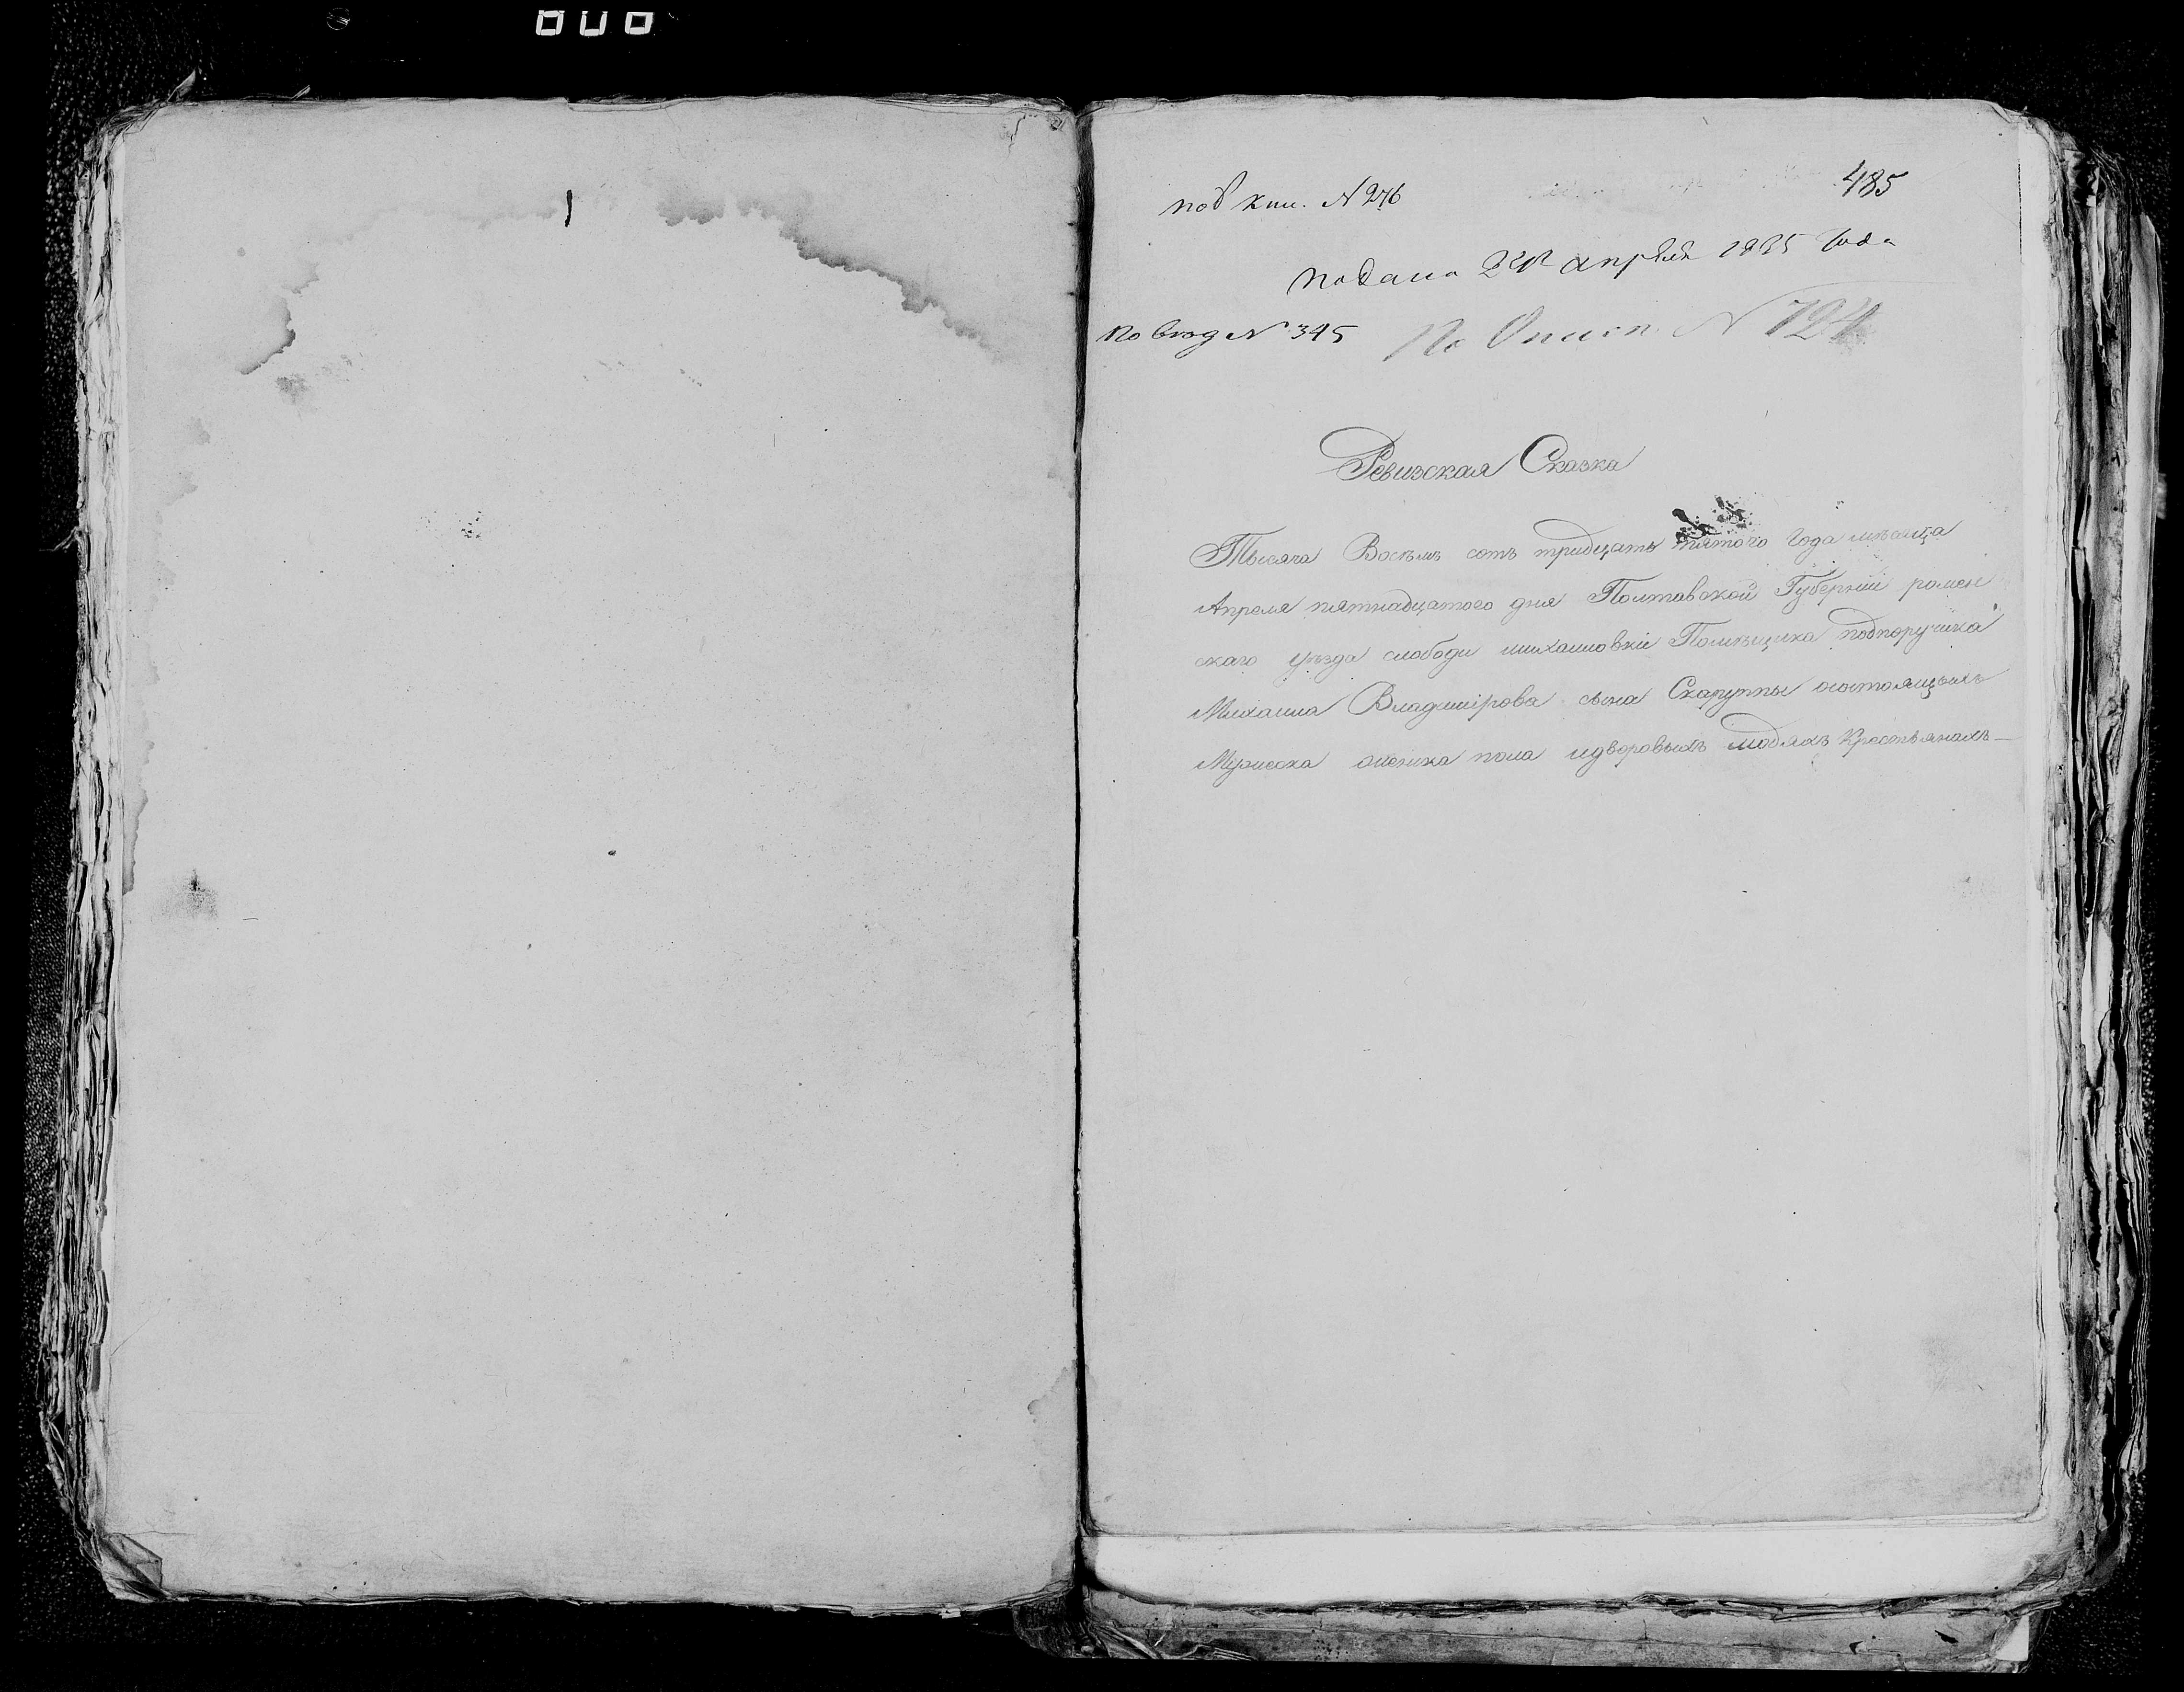 485
под кни. N 276
подана 22го апреля 1835 Года
По вход N 345
По Описи N 724
Ревизская Сказка
Тысяча Восемь сотъ тридцать пятого Года мѣсяца
Апреля пятнадцатого дня Полтавской Губернии ромен
скаго уѣзда слободи михаиловки Помѣщика подпоручика
Михаила Владимірова сына Скаруппы осостоящыхъ
Мужеска оженска пола идворовыхъ людяхъ Крестьянахъ—